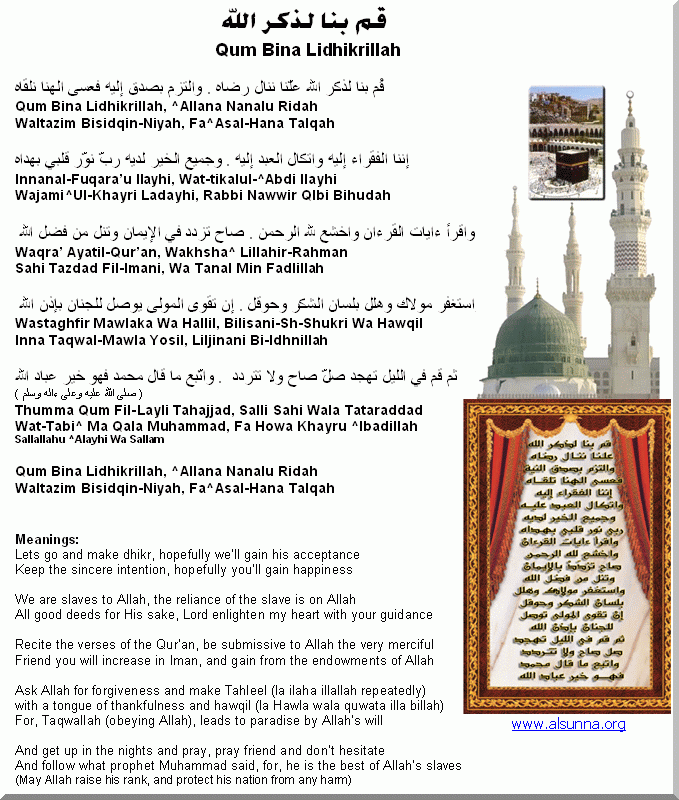 قم بنا لذكر الله
Qum Bina Lidhikrillah
قُم بنا لذكر الله علّنا ننال رضاه . والتزم بصدق إليه فعسى الهنا نلقاه
Qum Bina Lidhikrillah, ^Allana Nanalu Ridah
Waltazim Bisidqin-Niyah, Fa^Asal-Hana Talqah
إننا الفقراء إليه واتكال العبد إليه . وجميع الخير لديه ربّ نوّر قلبي بهداه
Innanal-Fuqara'u Ilayhi, Wat-tikalul-^Abdi Ilayhi
Wajami^Ul-Khayri Ladayhi, Rabbi Nawwir Qlbi Bihudah
واقرأ ءايات القرءان واخشع لله الرحمن . صاح تزدد في الإيمان وتنل من فضل الله
Waqra' Ayatil-Qur'an, Wakhsha^ Lillahir-Rahman
Sahi Tazdad Fil-Imani, Wa Tanal Min Fadlillah
استغفر مولاك وهلل بلسان الشكر وحوقل . إن تقوى المولى يوصل للجنان بإذن الله
Wastaghfir Mawlaka Wa Hallil, Bilisani-Sh-Shukri Wa Hawqil
Inna Taqwal-Mawla Yosil, Liljinani Bi-Idhnillah
ثم قم في الليل تهجد صلّ صاح ولا تتردد . واتّبع ما قال محمد فهو خير عباد الله
( صلى الله عليه وعلى ءاله وسلم )
Thumma Qum Fil-Layli Tahajjad, Salli Sahi Wala Tataraddad
Wat-Tabi^ Ma Qala Muhammad, Fa Howa Khayru ^Ibadillah
Sallallahu ^Alayhi Wa Sallam
Qum Bina Lidhikrillah, ^Allana Nanalu Ridah
Waltazim Bisidqin-Niyah, Fa^Asal-Hana Talqah
Meanings:
Lets go and make dhikr, hopefully we'll gain his acceptance
Keep the sincere intention, hopefully you'll gain happiness
We are slaves to Allah, the reliance of the slave is on Allah
All good deeds for His sake, Lord enlighten my heart with your guidance
Recite the verses of the Qur'an, be submissive to Allah the very merciful
Friend you will increase in Iman, and gain from the endowments of Allah
Ask Allah for forgiveness and make Tahleel (la ilaha illallah repeatedly)
with a tongue of thankfulness and hawqil (la Hawla wala quwata illa billah)
For, Taqwallah (obeying Allah), leads to paradise by Allah's will
And get up in the nights and pray, pray friend and don't hesitate
And follow what prophet Muhammad said, for, he is the best of Allah's slaves
(May Allah raise his rank, and protect his nation from any harm)
قم بنا لذكر الله
علنا ننال رضاه
والتزم بصدق النية
فعسى الهنا تلقاه
إننا الفقراء إليه
واتكال العبد عليه
وجميع الخير لديه
ربي نور قلبي بهداه
واقرأ ءايات القرءان
واخشع لله الرحمن
صاح تزدد بالإيمان
وتنل من فضل الله
واستغفر مولاك وهلل
بلسان الشكر وحوقل
إن تقوى المولى توصل
للجنان بإذن الله
ثم قم في الليل تهجد
صل صاح ولا تتردد
واتبع ما قال محمد
فهو خير عباد الله
www.alsunna.org